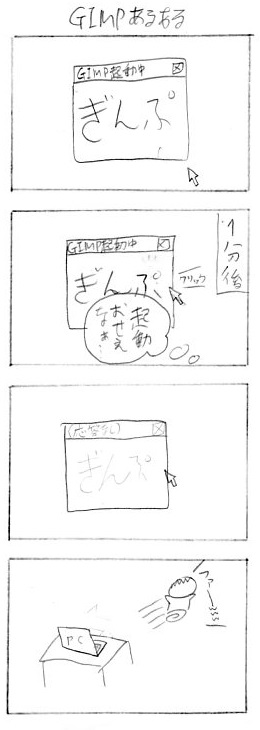 GIMPあるある
GIMP起動中
ぎんぷ
1分後
GIMP起動中
ぎんぷ
クリック
起動
おせえ
なぁ…
(応答なし)
ぎんぷ
PC